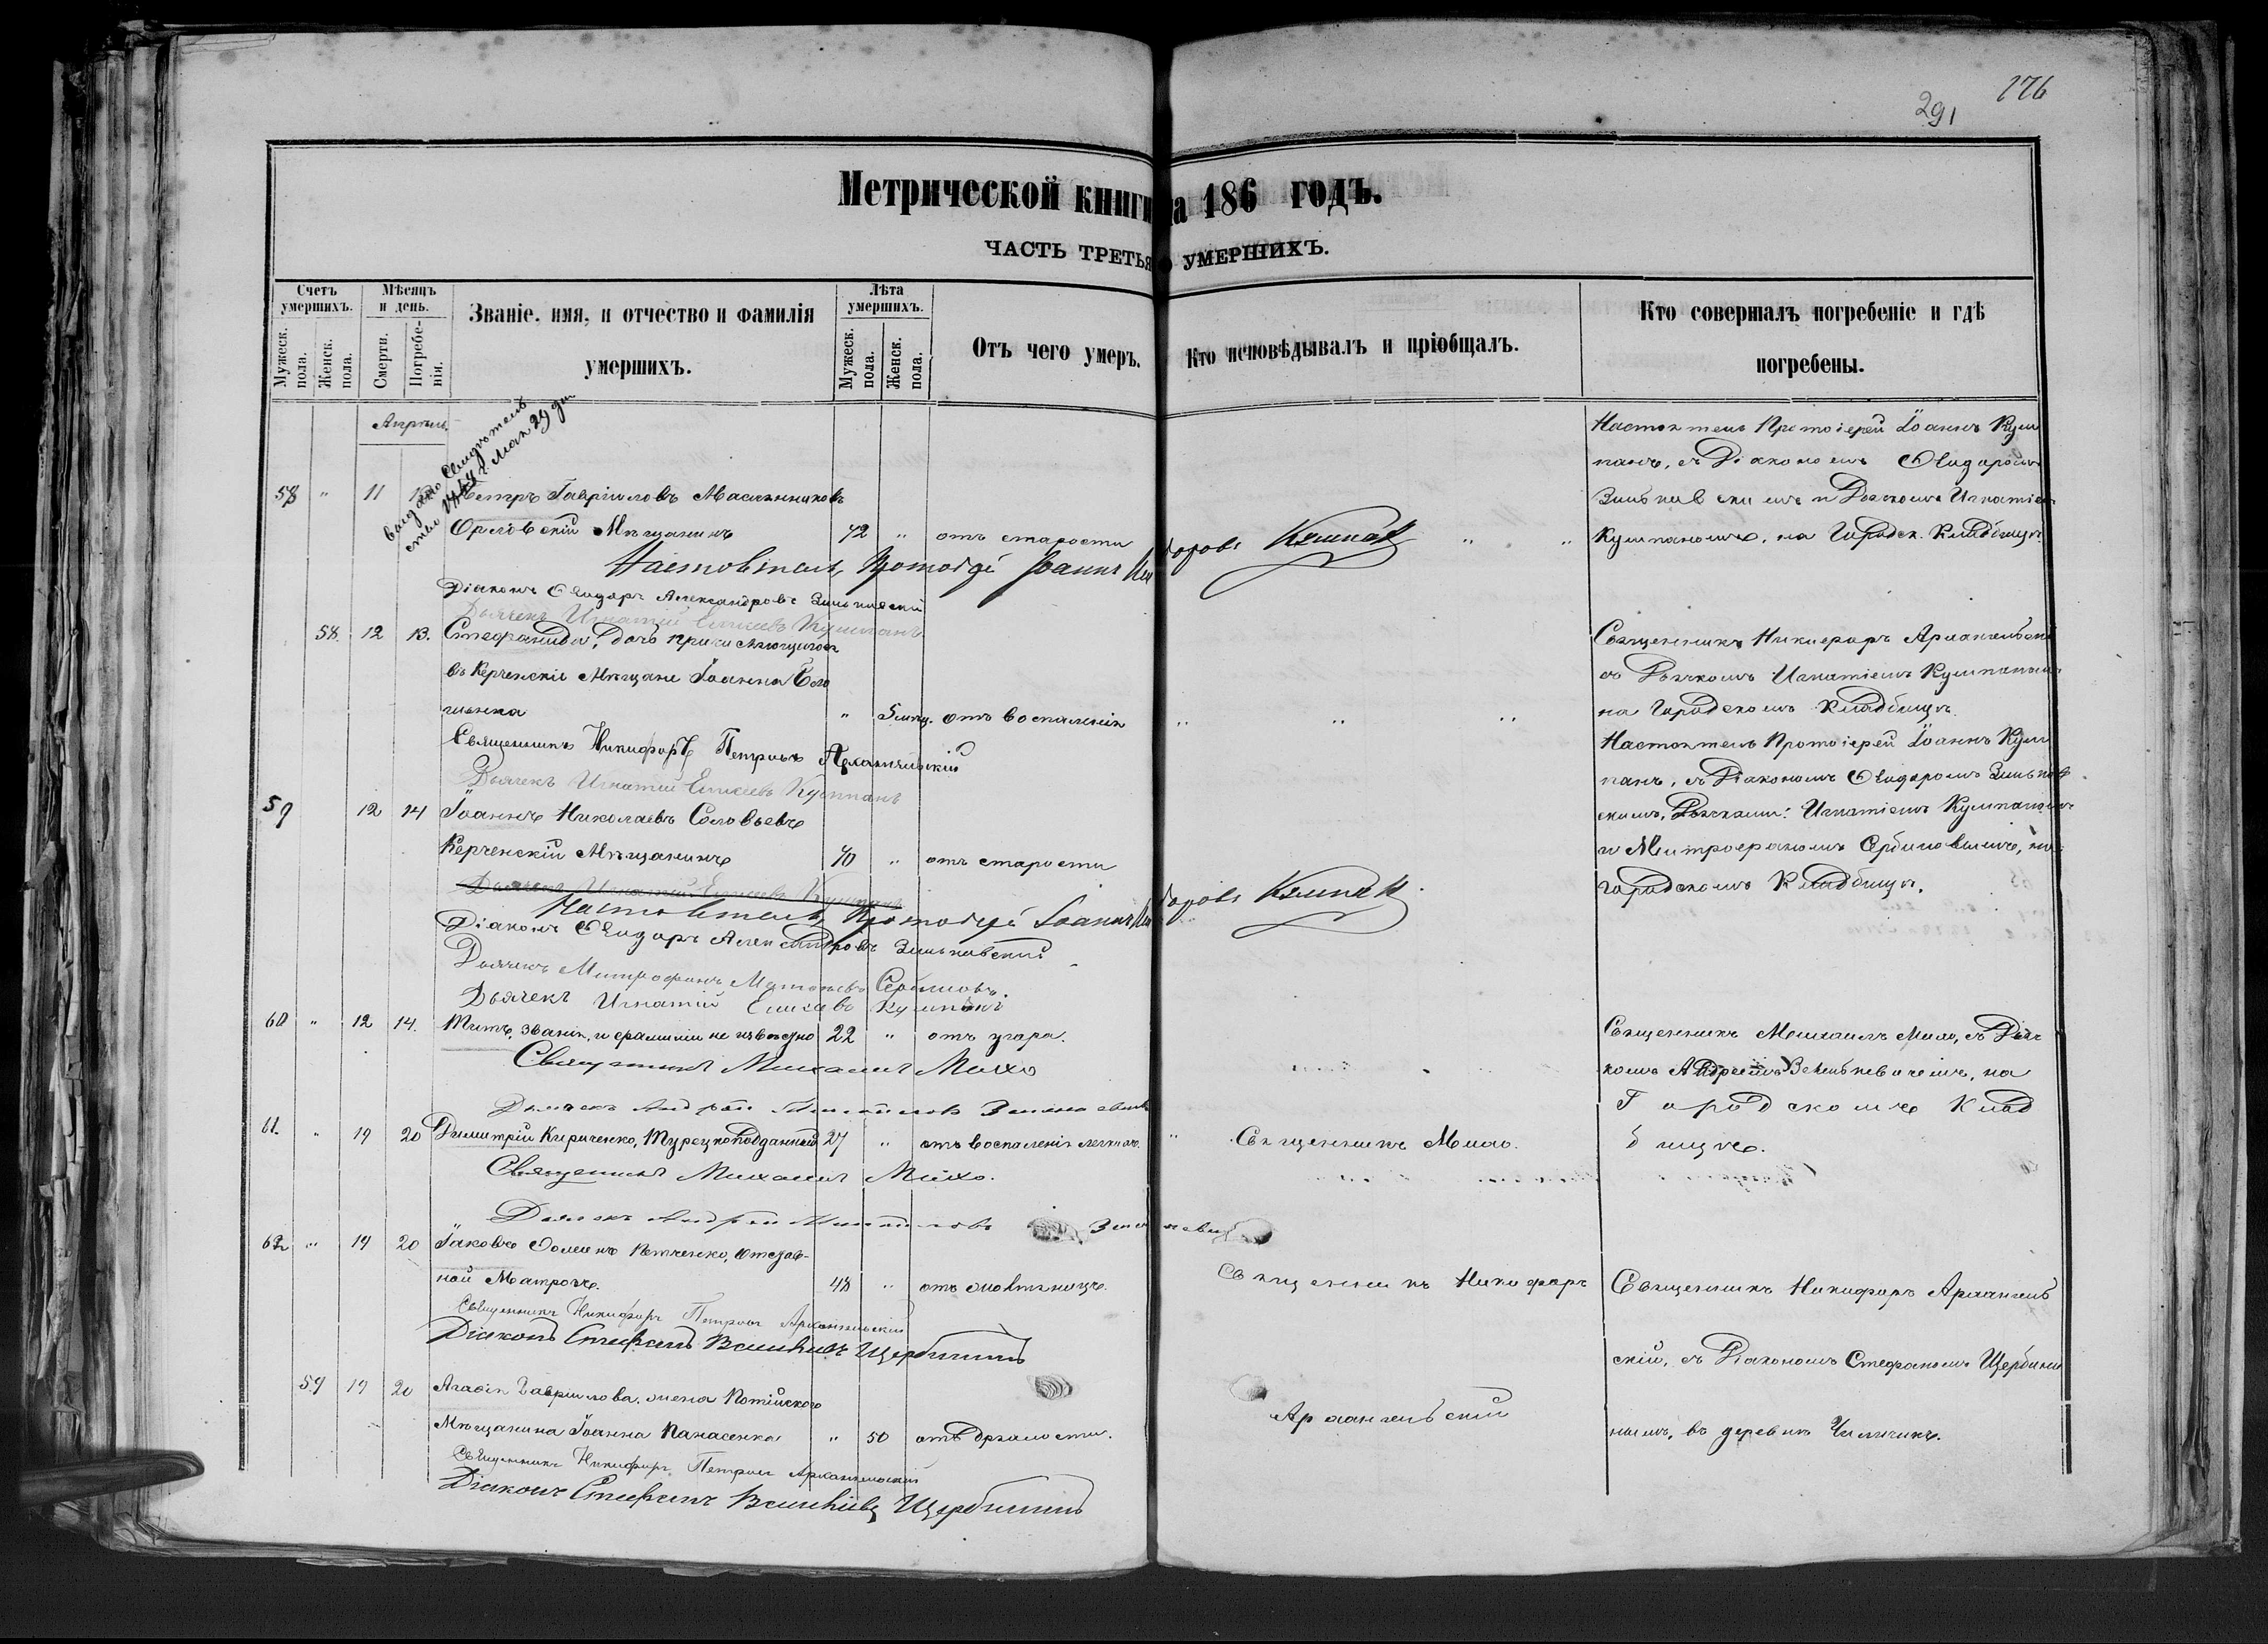 291
Метрической книги на 186 годъ.
ЧАСТЬ ТРЕТЬЯ УМЕРШИХЪ.
Счетъ умершихъ.
Мужеск. пола.
Женск. пола.
Мѣсяцъ и день.
Смерти.
Погребенія.
Званіе, имя, и отчество и фамилія умершихъ.
Лѣта умершихъ.
Мужеск. пола.
Женск. пола.
Отъ чего умеръ.
Кто исповѣдывалъ и пріобщалъ.
Кто совершалъ погребеніе и гдѣ погребены.
Апрѣль.
58 " 11 Петръ Гавріиловъ Масленниковъ
Орловскій Мѣщанинъ 72 " отъ старости
Настоятель Протоіерей Іоаннъ
Діаконъ Ѳеодоръ Александровъ Зиньковскій
Дьячекъ Игнатій Елисеевъ Кумпанъ
Настоятель Протоіерей Іоаннъ Кум
панъ, съ Діакономъ Ѳеодоромъ
Зиньковскимъ и Дьячкомъ Игнатіемъ
Кумпаномъ, на Городск. Кладбищѣ.
58. 12 13. Стефанида, дочь причисляющагося
въ Керченскіе Мѣщане Іоанна
" 5 мѣц. отъ воспаленія
Священникъ Никифоръ Петровъ Архангельскій
Дьячекъ Игнатій Елисеевъ Кумпанъ
Священникъ Никифоръ Архангельскій
съ Дьячкомъ Игнатіемъ Кумпаномъ
на Городскомъ Кладбищѣ.
59 12 14 Іоаннъ Николаевъ Соловьевъ
Керченскій Мѣщанинъ 70 " отъ старости
Дьячекъ Игнатій Елисеевъ Кумпанъ
Настоятель Протоіерей Іоаннъ
Діаконъ Ѳеодоръ Александровъ Зиньковскій
Дьячекъ Митрофанъ Сербиновъ.
Дьячекъ Игнатій Елисеевъ Кумпанъ
Настоятель Протоіерей Іоаннъ Кум
панъ, съ Діакономъ Ѳеодоромъ Зиньков
скимъ, Дьячками: Игнатіемъ Кумпаномъ
и Митрофаномъ Сербиновымъ, на
городскомъ Кладбищѣ.
60 " 12 14. Титъ, званія, и фамиліи не извѣстно 22 " отъ угара.
Священникъ Михаилъ Михо
Дьячекъ Андрей
Священникъ Михаилъ Михо, съ Дьяч
комъ Андреемъ на
Городскомъ Клад
бищѣ.
61. " 19 20 Димитрій Кириченко, Турецкоподданный 27 " отъ воспаленія легкихъ. " Священникъ Михо.
Священникъ Михаилъ Михо.
Дьячекъ Андрей
62 " 19 20 Іаковъ Ѳоминъ Петченко, Отстав-
ной Матросъ. 48 "
Священникъ Никифоръ Петровъ Архангельскій
Діаконъ Стефанъ Васильевъ Щербининъ
Священникъ Никифоръ
Архангельскій
Священникъ Никифоръ Архангель
скій, съ Діакономъ Стефаномъ Щербини
нымъ, въ деревнѣ
59 19 20 Агафія Гавріилова, жена Потійскаго
Мѣщанина Іоанна Панасенка " 50 отъ дряхлости.
Священникъ Никифоръ Петровъ Архангельскій
Діаконъ Стефанъ Васильевъ Щербининъ